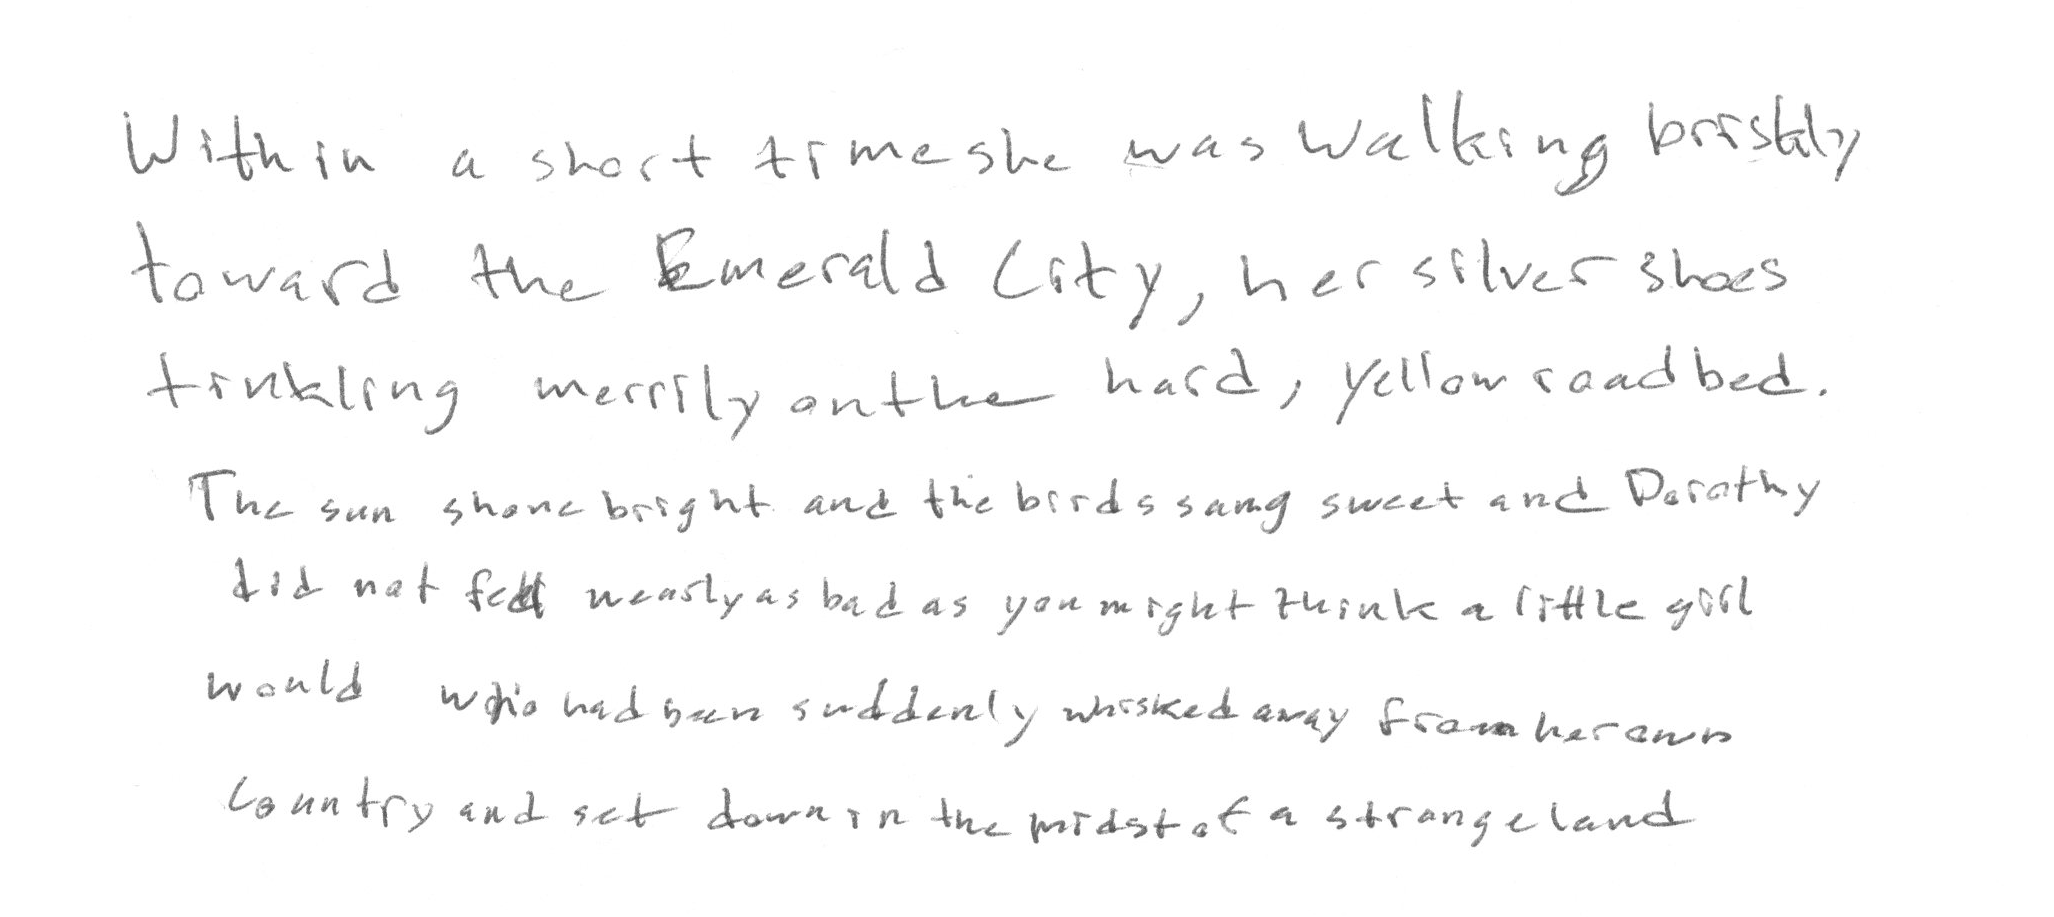 Within a short time she was walking briskly
toward the Emerald City, her silver shoes
tinkling merrily on the hard, yellow roadbed.
The sun shone bright and the birds sang sweet and Dorothy
did not feel nearly as bad as you might think a little girl
would who had been suddenly whisked away from her own
country and set down in the midst of a strange land